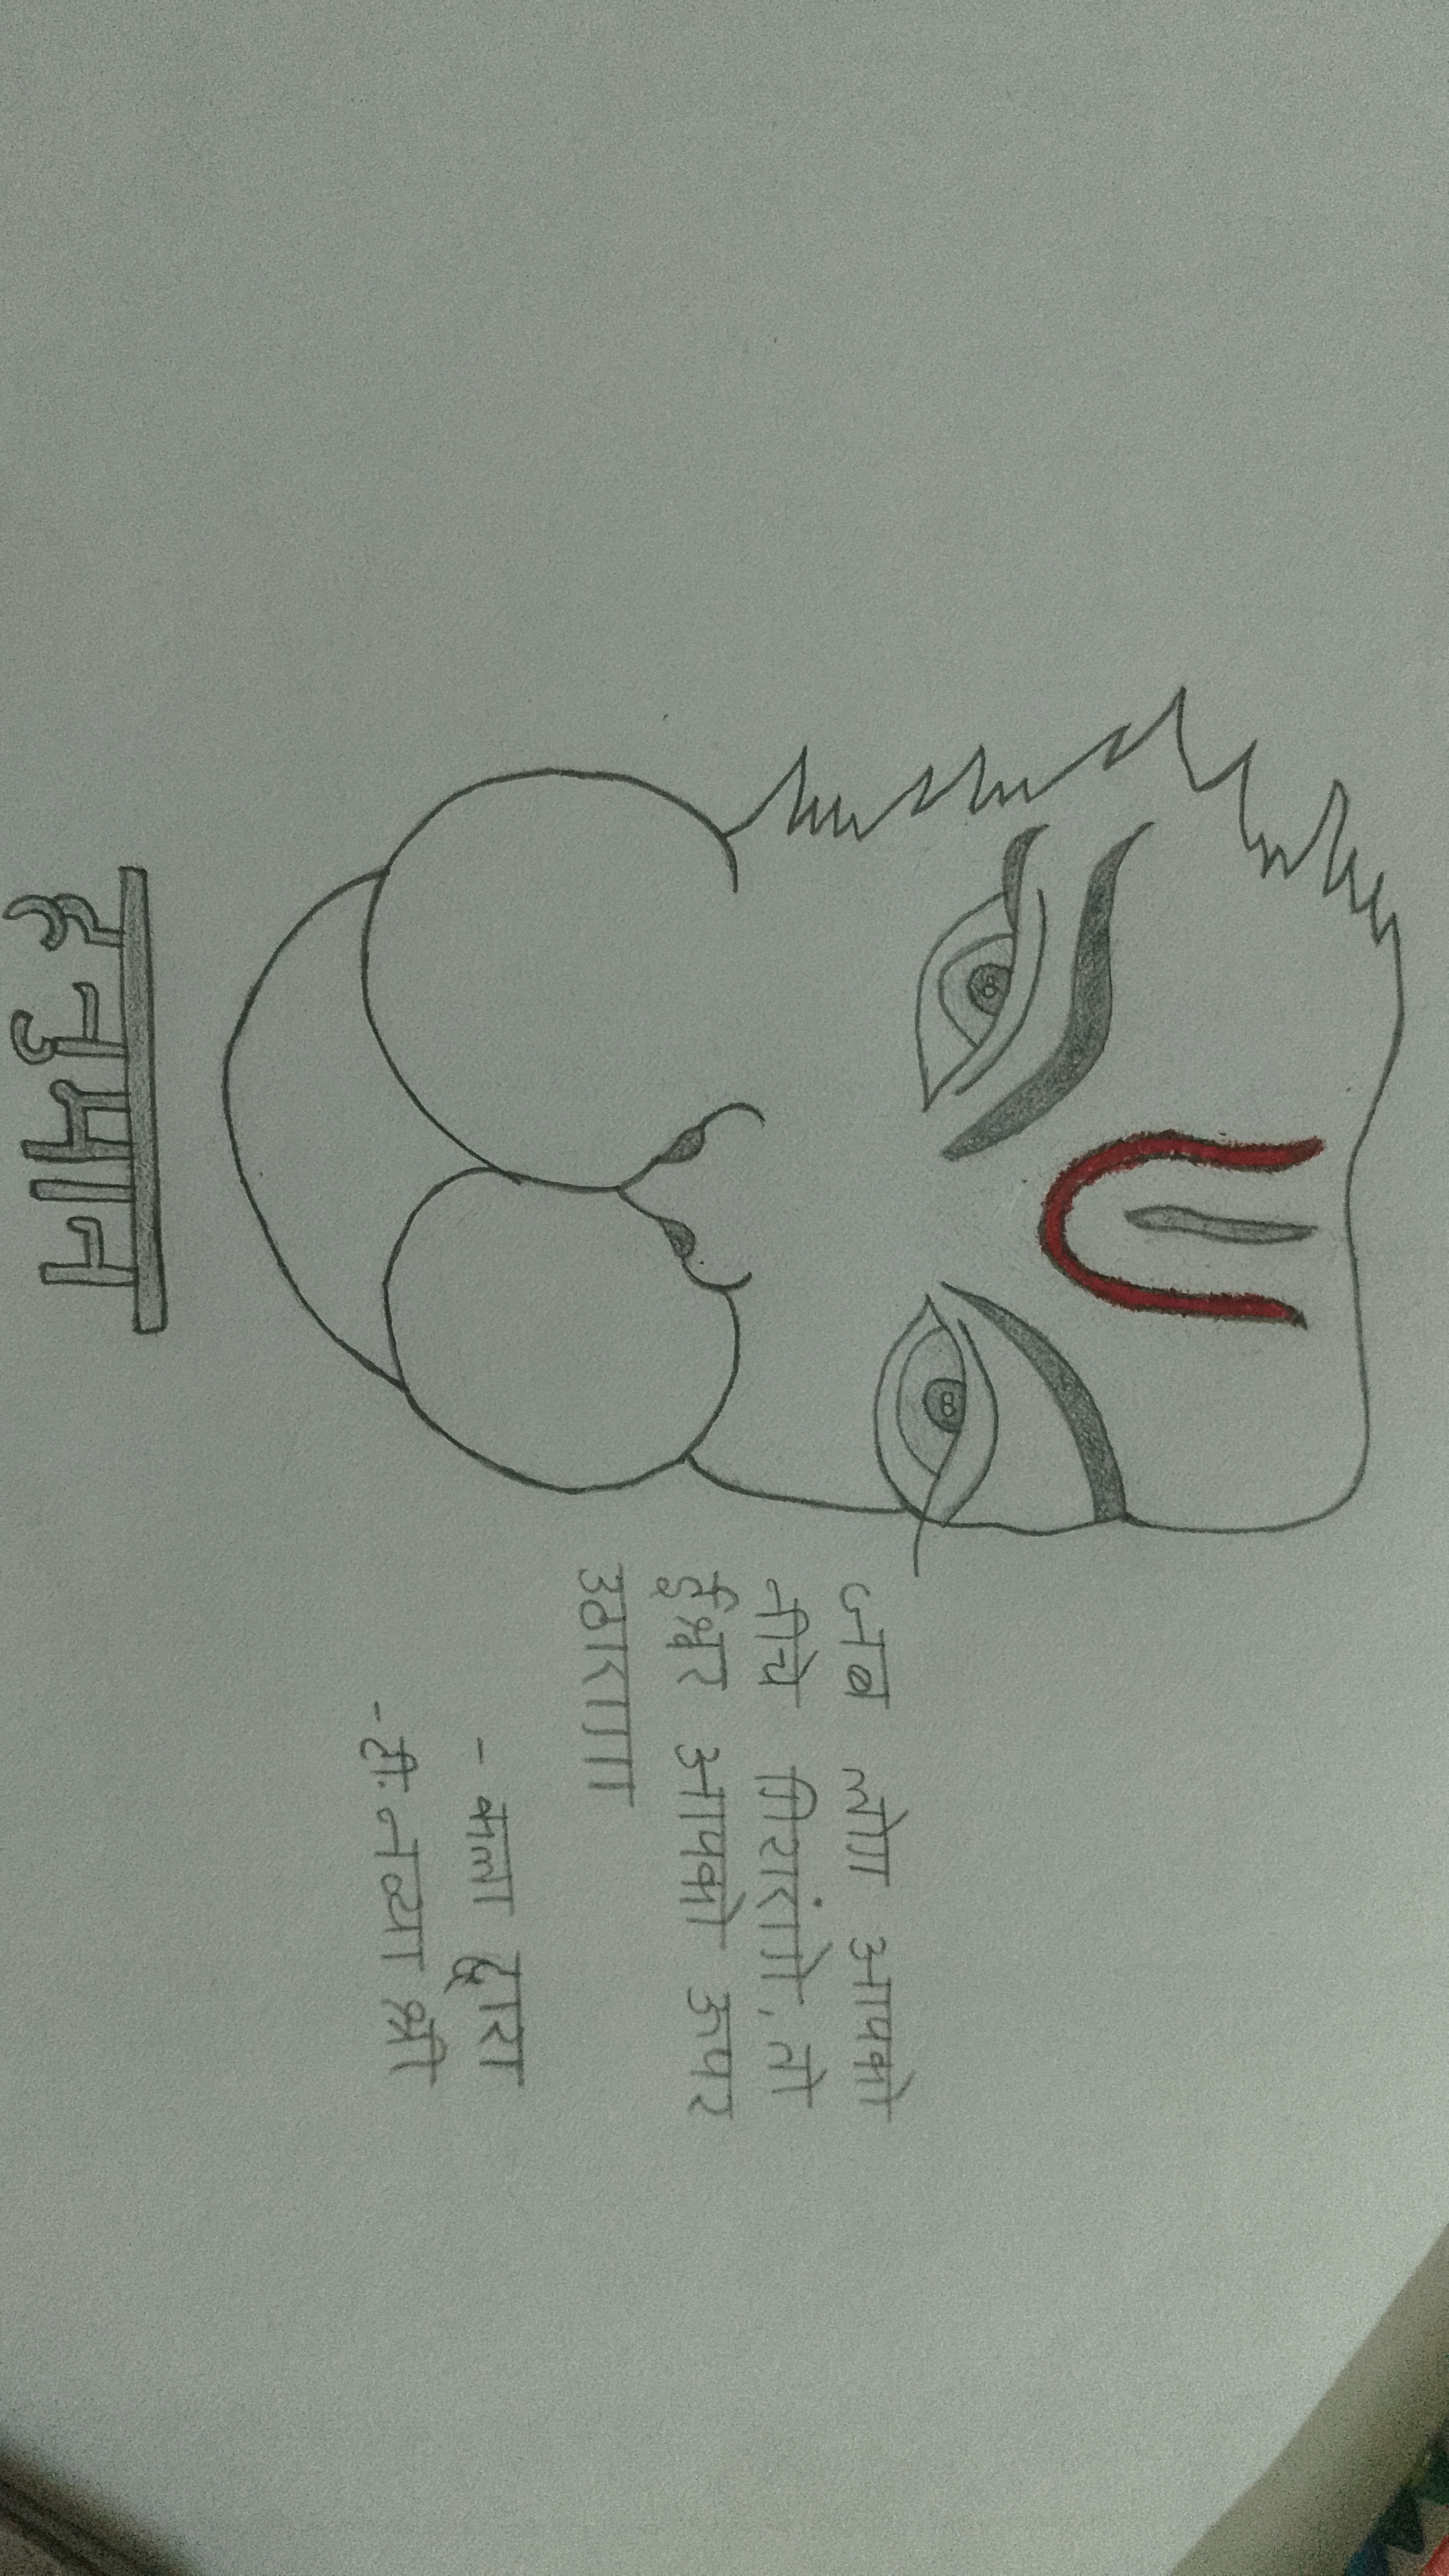 जब लोग आपको
नीचे गिराएंगे, तो
ईश्वर आपको ऊपर
उठाएगा
- कला द्वारा
- टी. नव्या श्री
हनुमान